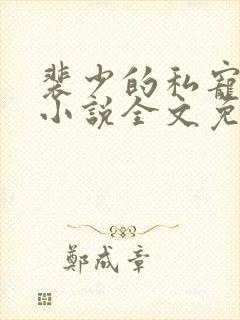 裴少的私寵
小說全文免
鄭成章